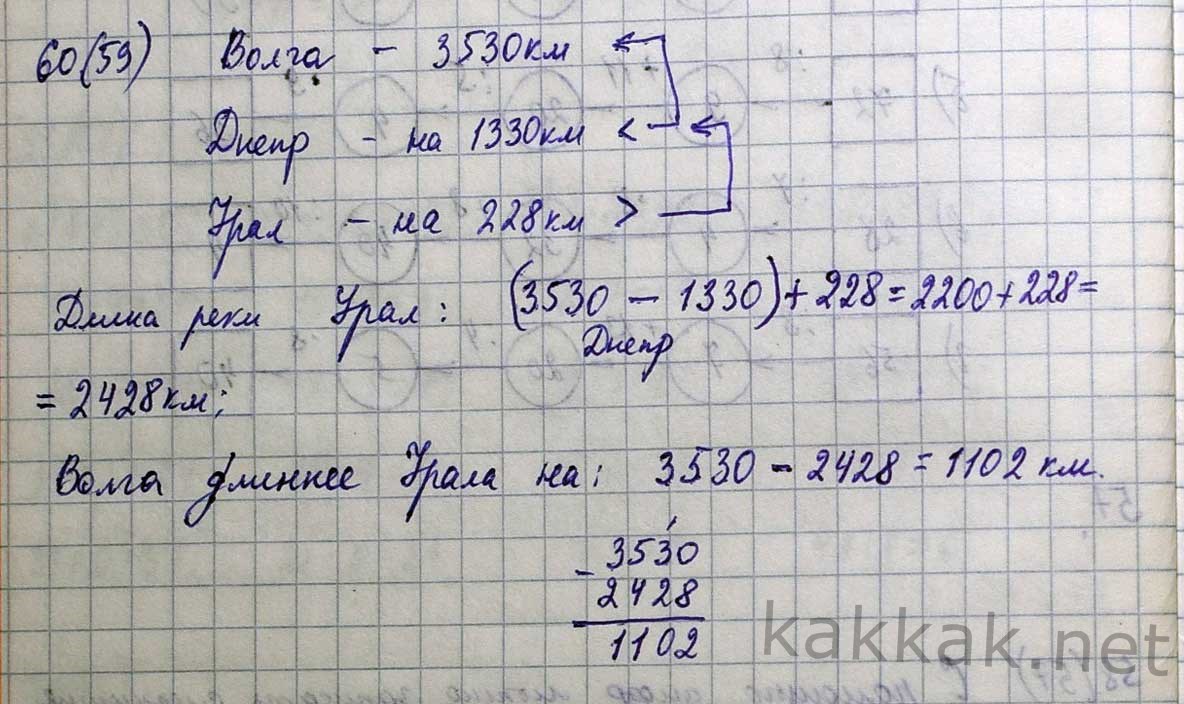 60(59) Волга - 3530км
Днепр - на 1330км <
Урал - на 228км >
Длина реки Урал: (3530 - 1330) + 228 = 2200 + 228 =
Днепр
= 2428км;
Волга длиннее Урала на: 3530 - 2428 = 1102 км.
3530
- 2428
1102
kakkak.net